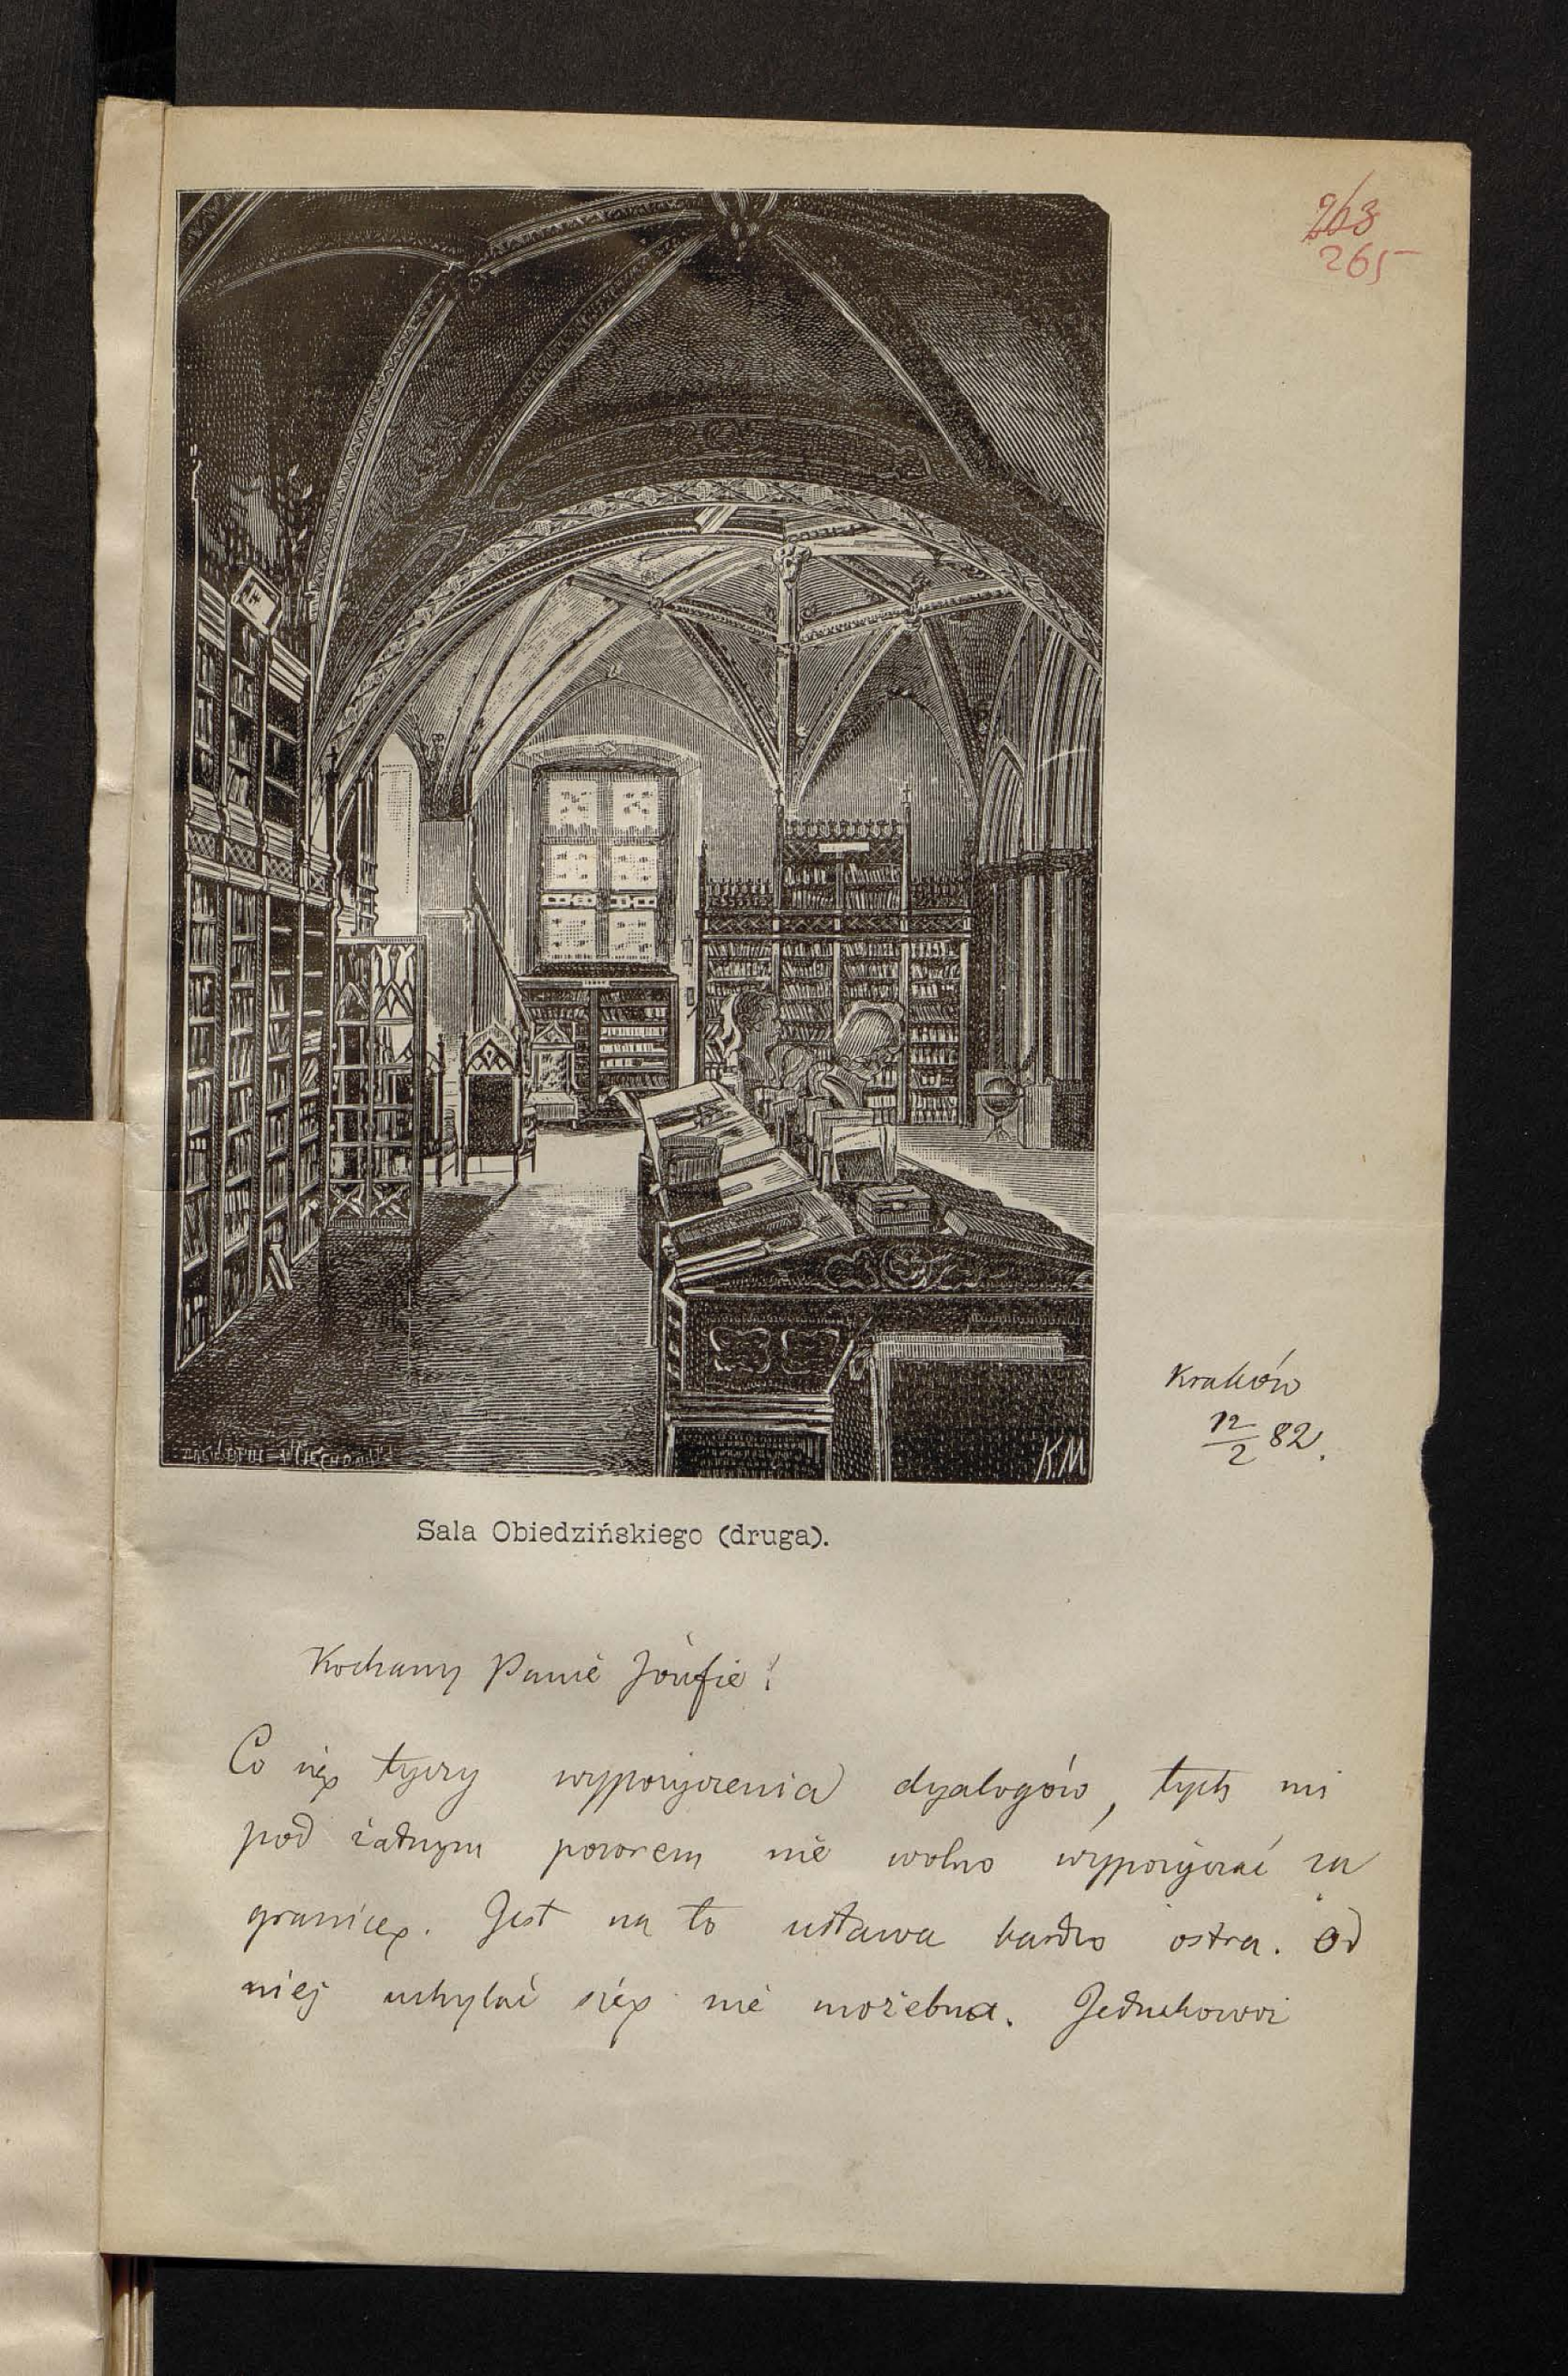 263
265
Kraków
12/2 82.
K.M
Sala Obiedzińskiego (druga).
Kochany Panie Józefie!
Co się tyczy wypożyczenia dyalogów, tych mi
pod żadnym pozorem nie wolno wypożyczać za
granicę. Jest na to ustawa bardzo ostra. Od
niej uchylać się nie możebna. Jednakowoż